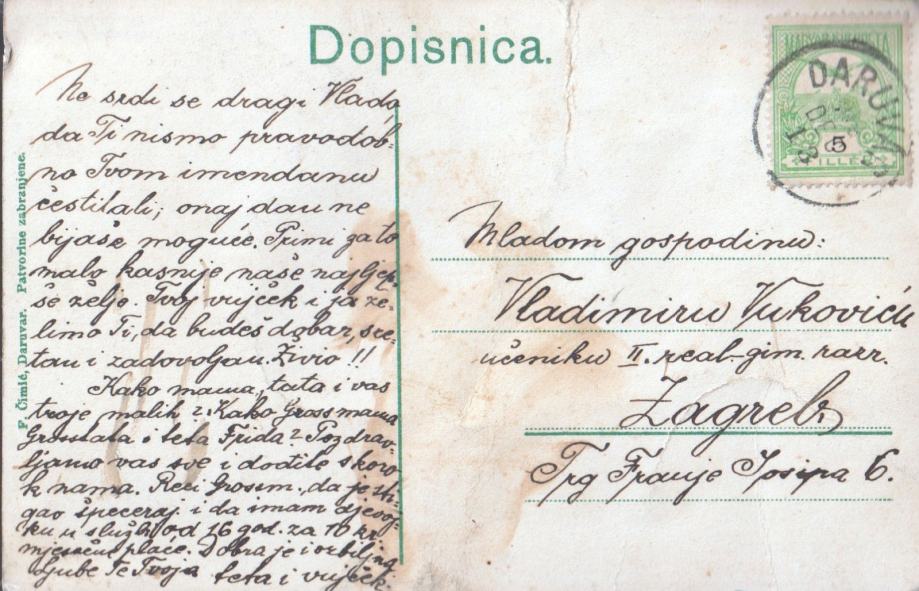 Dopisnica.
DARUVAR
5
FILLÉR
Ne srdi se dragi Vlado
da Ti nismo pravodob-
no Tvom imendanu
čestitali; onaj dan ne
bijaše moguće. Primi za to
malo kasnije naše najljep-
še želje. Tvoj vujček i ja že-
limo Ti, da budeš dobar, sre-
tan i zadovoljan. Živio!!
Kako mama, tata i vas
troje malih? Kako Grossmama
Grosstata i teta Frida? Pozdrav-
ljamo vas sve i dođite skoro
k nama. Reci Grossm. da je sti-
gao špeceraj i da imam djevoj-
ku u službi od 16 god. za 10 kr
mjesečne plaće. Dobra je i ozbiljna
Ljube Te Tvoja teta i vujček.
F. Čimić, Daruvar. Patvorine zabranjene.
Mladom gospodinu:
Vladimiru Vukoviću
učeniku II. real-gim. razr.
Zagreb
Trg Franje Josipa 6.